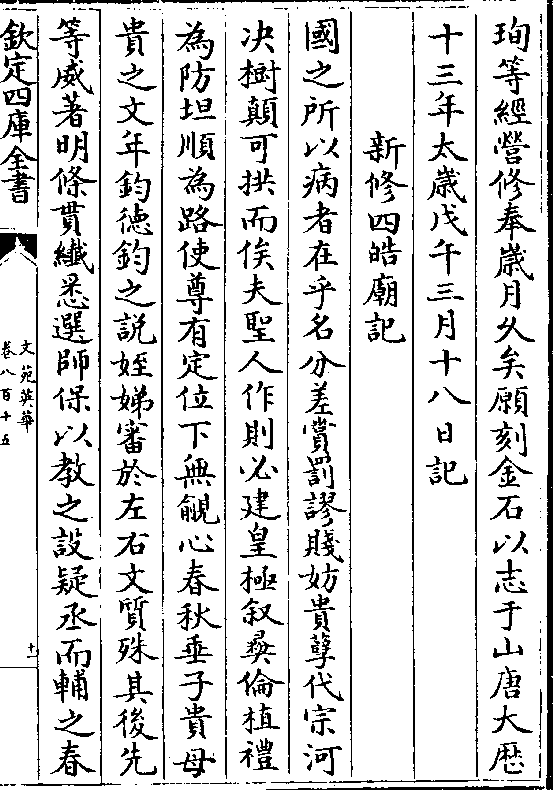 珣等經營修奉歳月久矣願刻金石以志于山唐大厯
十三年太歳戊午三月十八日記
新修四皓廟記
國之所以病者在乎名分差賞罰謬賤妨貴孽代宗河
决樹顛可拱而俟夫聖人作則必建皇極叙彛倫植禮
為防坦順為路使尊有定位下無覦心春秋垂子貴母
貴之文年鈞徳鈞之説姪娣審於左右文質殊其後先
等威著明條貫纎悉選師保以教之設疑丞而輔之春
欽定四庫全書
文苑英華
卷八百十五
十一